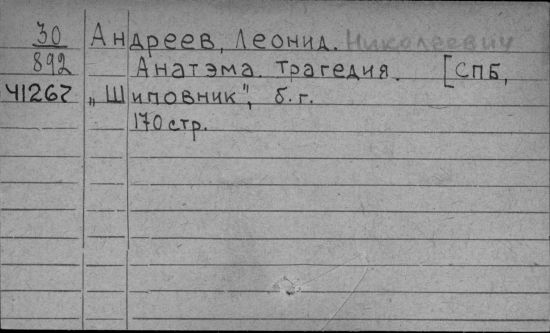 30 Андреев, Леонид. Николеевич
892 Анатэма. Трагедия. [СПБ,
41267 „Шиповник", б.г.
170 стр.